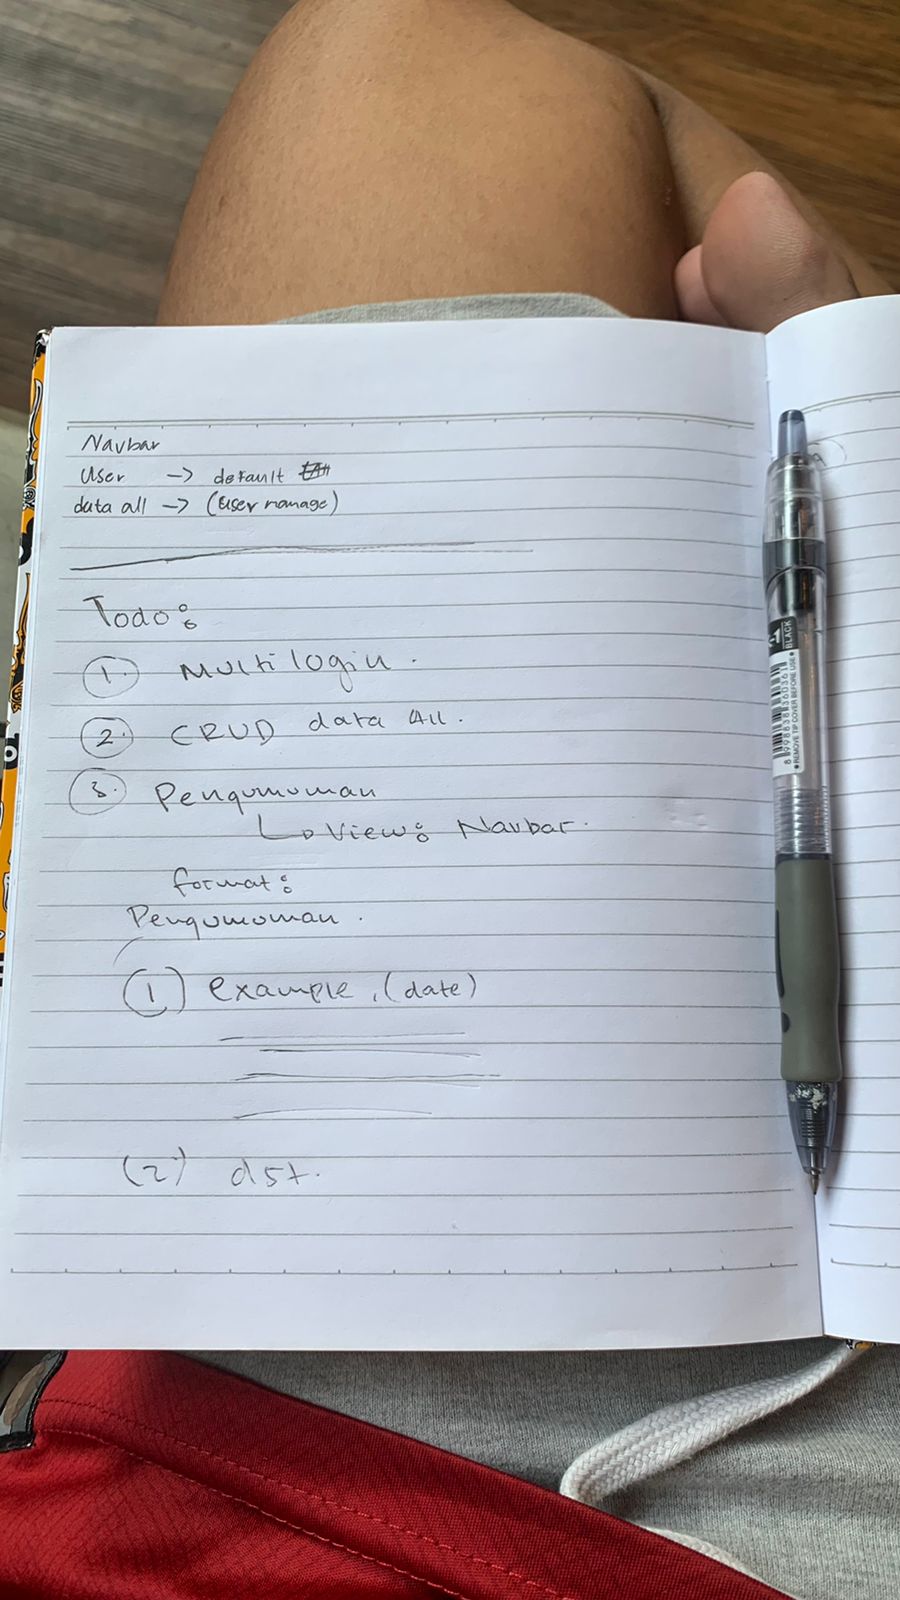 Navbar
User -> default
data all -> (user manage)
Todo:
1. Multi login.
2. CRUD data All.
3. Pengumuman
↳ View: Navbar.
format:
Pengumuman.
(1) example, (date)
(2) dst.
BLACK
8998838360361
*REMOVE TIP COVER BEFORE USE*